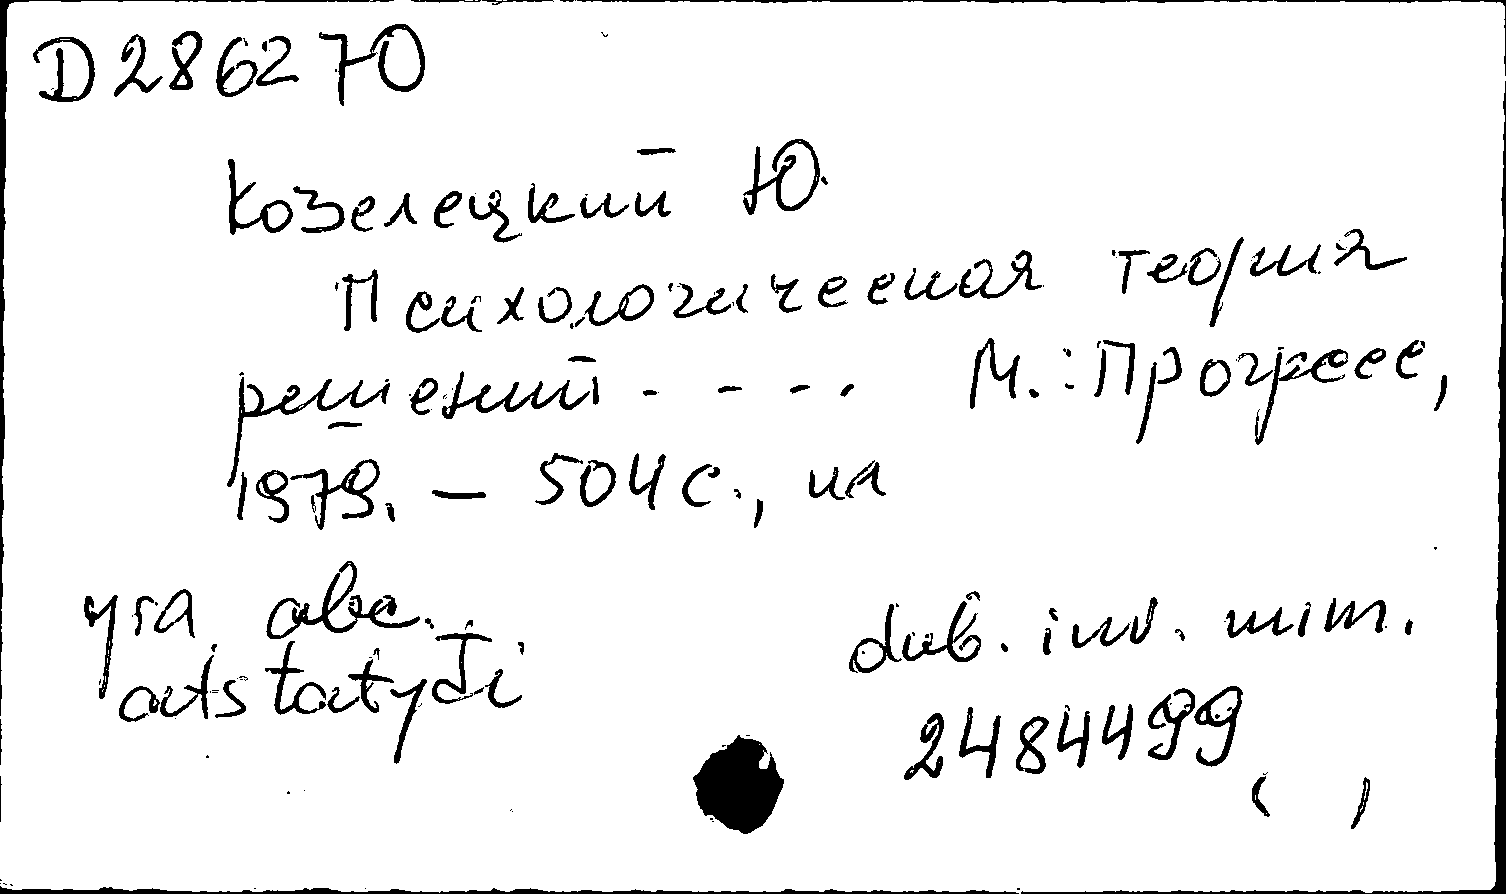 D286270
Козелецкий Ю.
Психологическая теория
решений - - - . М.: Прогресс,
1979. – 504 с., ил
yra abc.
atstatyti
dub. inv. num.
2484499